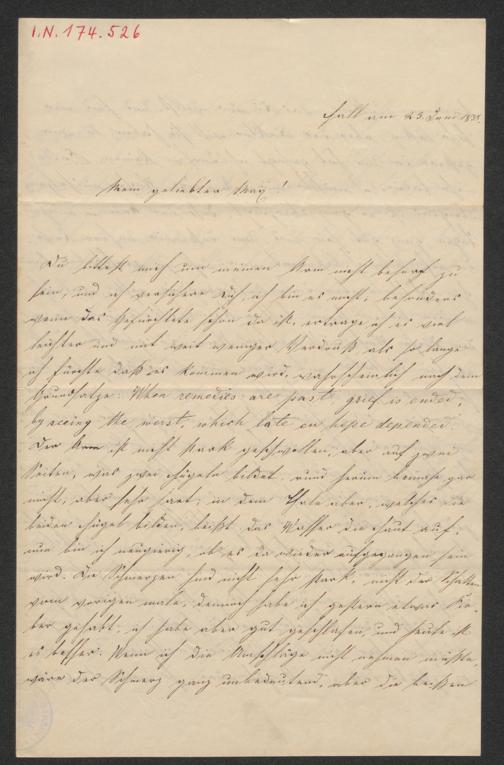 I.N. 174.526
Hall am 23. Juni 183
Mein geliebter Max!
Du bittest mich um meinen Arm nicht besorgt zu
sein, und ich versichere Dich, ich bin es nicht, besonders
wenn das Gefürchtete schon da ist, ertrage ich es viel
leichter und mit weit weniger Verdruß als so lange
ich fürchte daß es kommen wird, wahrscheinlich nach dem
Grundsatze: When remedies are past grief is ended,
by seeing the worst, which late on hope depended.
Der Arm ist nicht stark geschwollen, aber auf zwei
Seiten, was zwei Hügeln bildet, rund herum beinahe gar
nicht, aber sehr hart; in dem Thale aber, welches die
beiden Hügel bilden, beißt das Wasser die Haut auf;
nun bin ich neugierig, ob es da wieder aufgegangen sein
wird. Die Schmerzen sind nicht sehr stark, nicht der Schatten
vom vorigen male, dennoch habe ich gestern etwas Fie-
ber gehabt, ich habe aber gut geschlafen, und heute ist
es besser. Wenn ich die Umschläge nicht nehmen müßte,
wäre der Schmerz ganz unbedeutend, aber die beißen